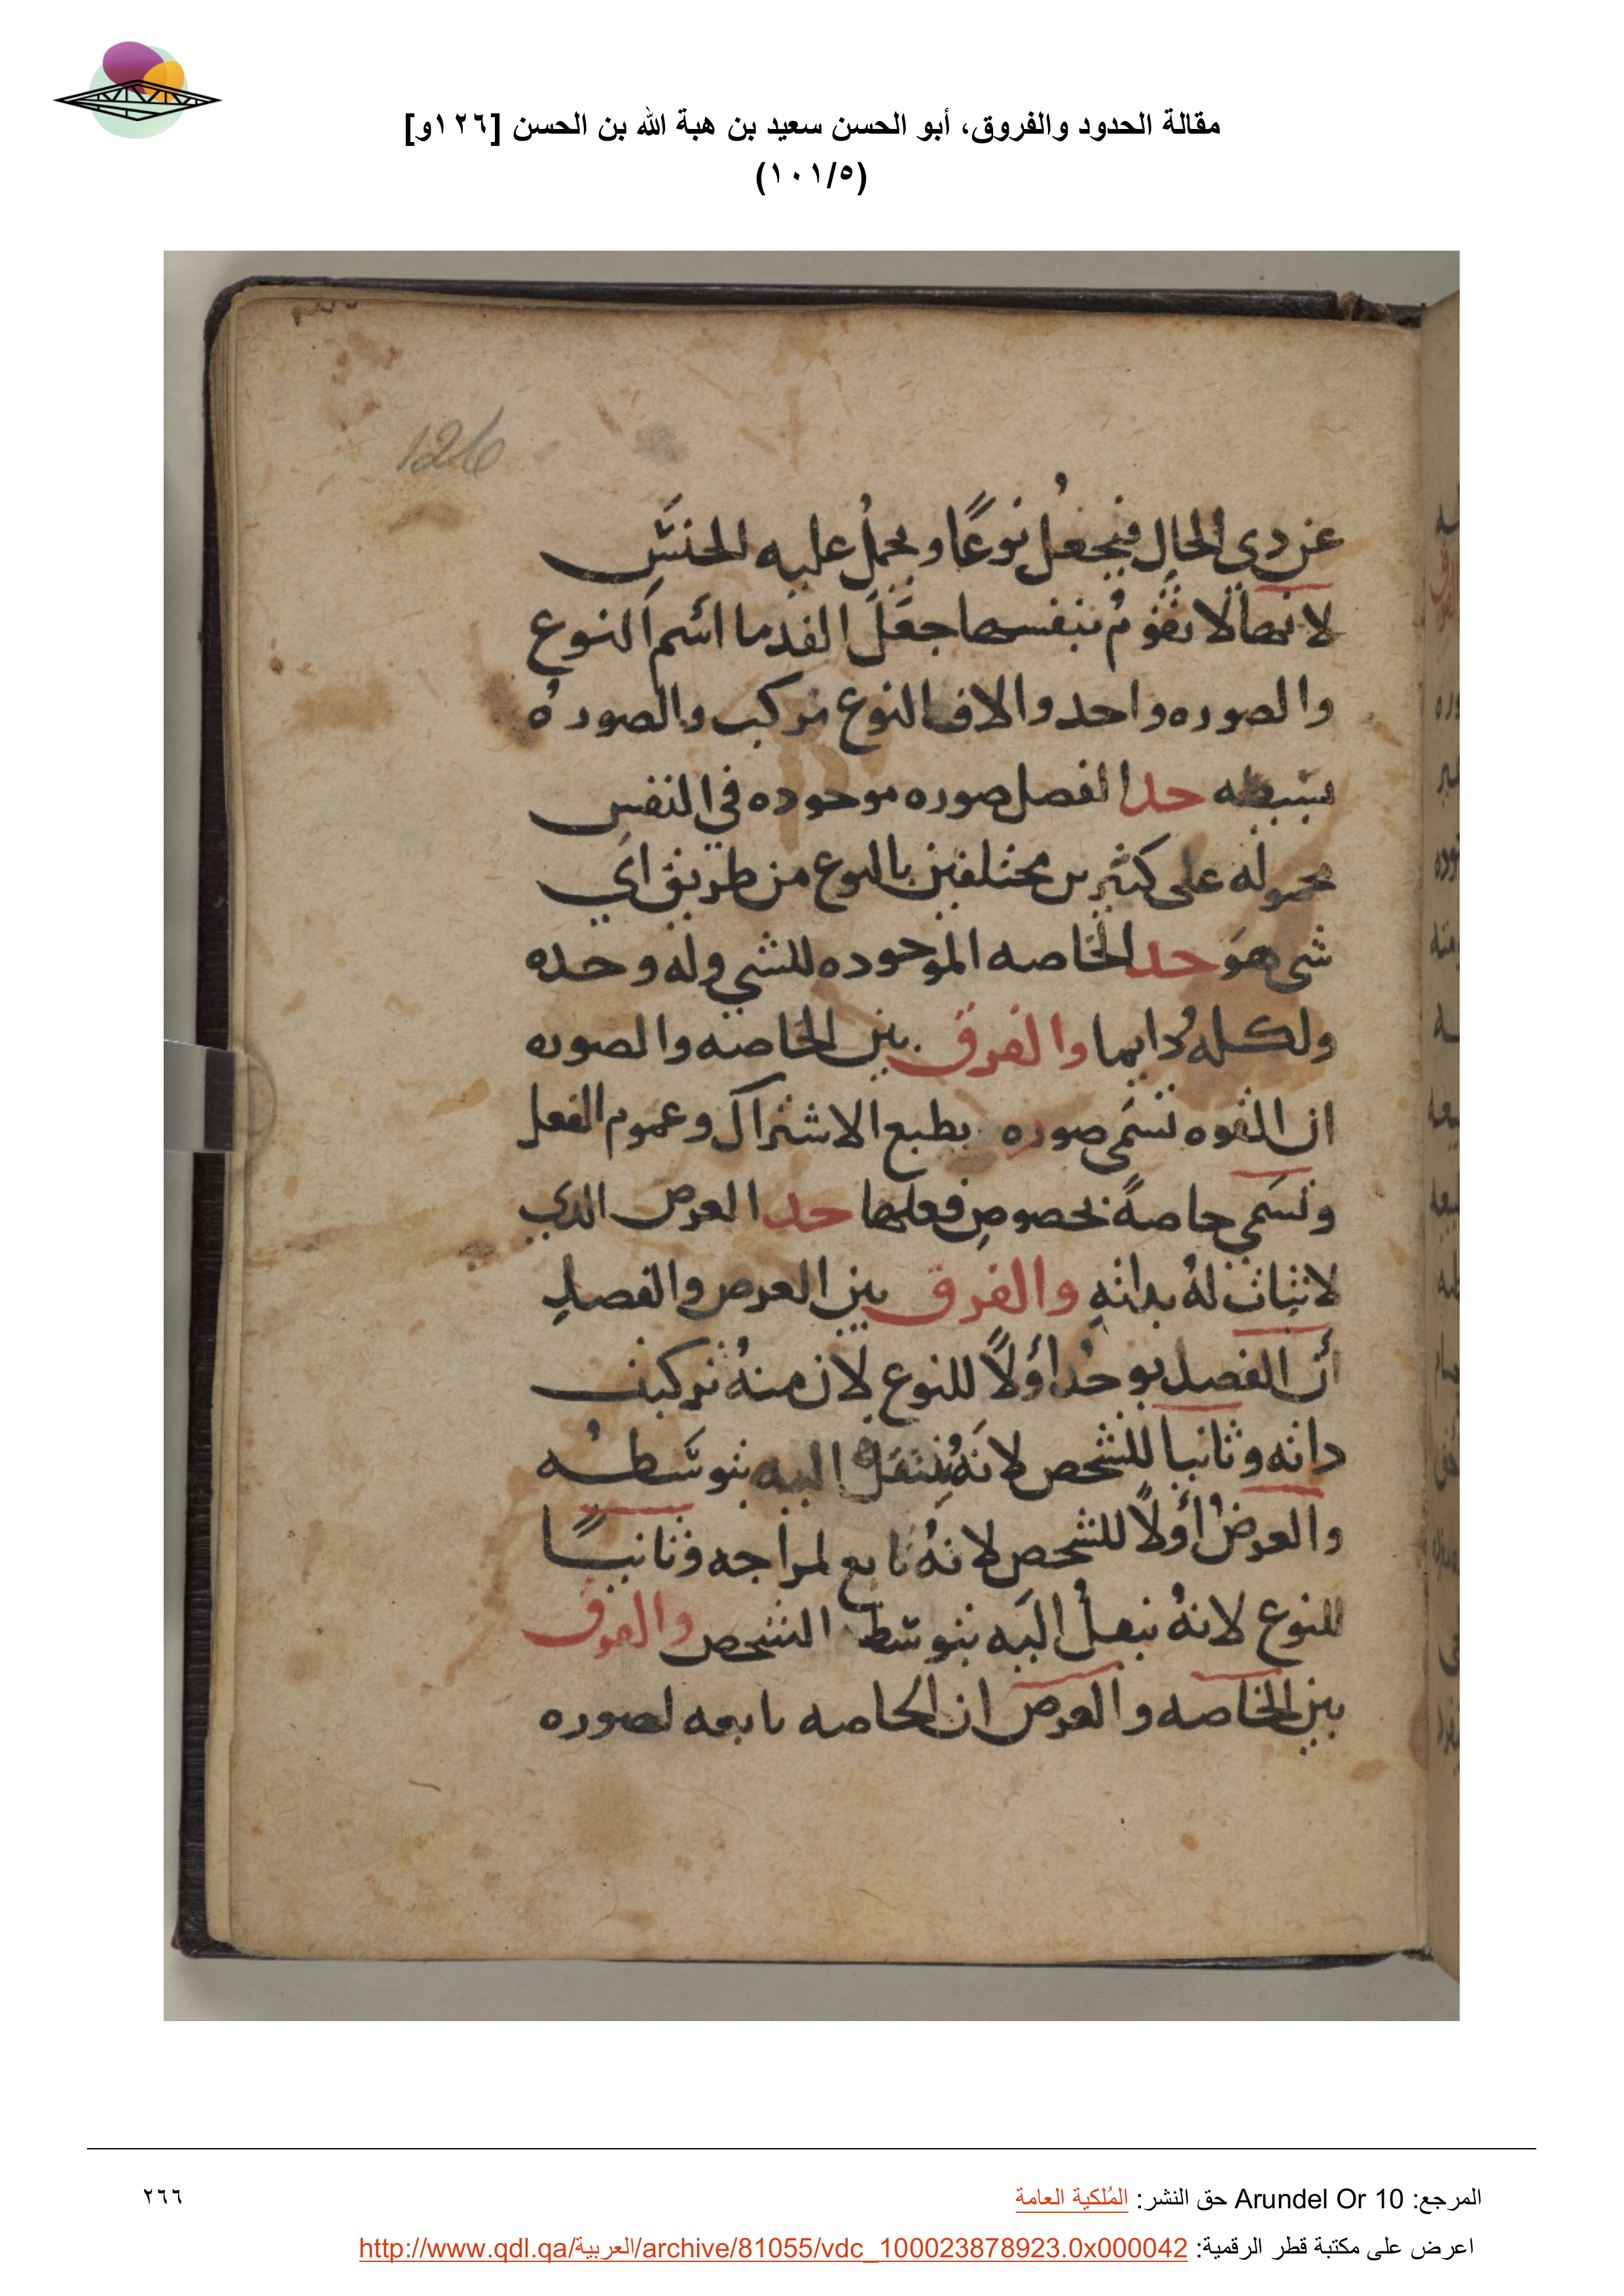 مقالة الحدود والفروق، أبو الحسن سعيد بن هبة الله بن الحسن [١٢٦و]
(١٠١/٥)
126
عن دى الحالِ فيجعلُ نوعًا ويحملُ عليه الجنسِ
لانها لا تقومُ بنفسها جعَلَ القدما اسم النوع
والصوره واحد والا فالنوع مركب والصوره
بسيطه حد الفصل صوره موجوده في النفسِ
محموله على كثيرين مختلفين بالنوع من طريق اي
شى هو حد الخاصه الموجوده للشي وله وحده
ولكله دايما والفرق بين الخاصه والصوره
ان القوه تسمى صوره بطبع الاشتراك وعموم الفعل
وتسمى خاصةً بخصوصِ فعلها حد العرض الدي
لا ثبات لهُ بداتهِ والفرق بين العرض والفصلِ
أن الفصل يوخدُ اولًا للنوع لان منهُ تركيب
داته وثانيا للشخص لانهُ ينتقل اليه بتوسطه
والعرضُ أولًا للشخص لانهُ تابع لمزاجه وثانيًا
للنوع لانهُ ينقلُ اليه بتوسط الشخص والفرق
بين الخاصه والعرض ان الخاصه تابعه لصوره
المرجع: Arundel Or 10 حق النشر: المُلكية العامة
٢٦٦
اعرض على مكتبة قطر الرقمية: http://www.qdl.qa/العربية/archive/81055/vdc_100023878923.0x000042